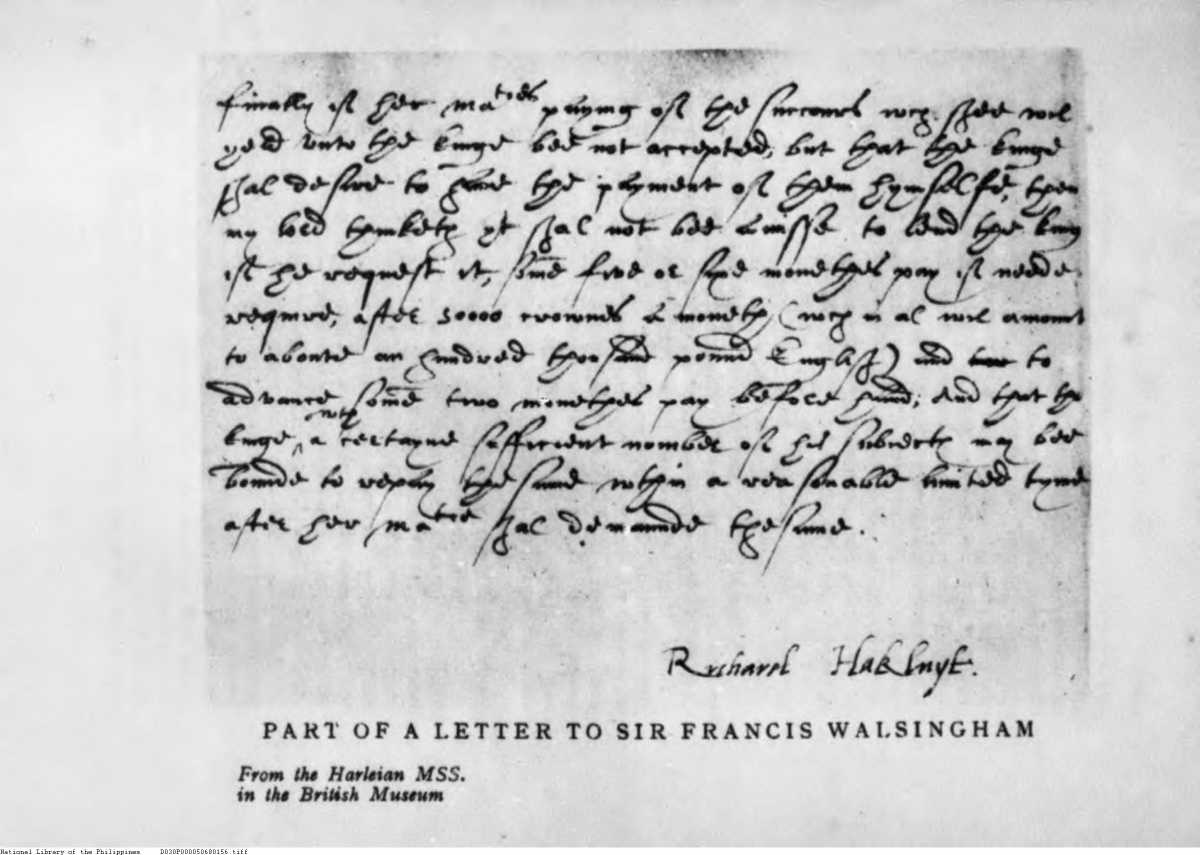 finally if her matıes paying of the succours wch shee wil
yeld unto the kinge bee not accepted, but that the kinge
shal desire to have the payment of them hymselfe, then
my lord thinketh yt shal not bee amisse to lend the king
if he request it, some five or sixe monethes pay if neede
require, after 50000 crownes a moneth, (wch in al wil amount
to aboute an hundred thousand pound English) and to
advance some two monethes pay before hand; And that the
kinge, wth a certayne sufficient nomber of his subiects may bee
bounde to repay the same wthin a reasonable limited tyme
after her matıe shal demaunde the same.
Richard Hakluyt.
PART OF A LETTER TO SIR FRANCIS WALSINGHAM
From the Harleian MSS.
in the British Museum
National Library of the Philippines D030PD00050680156.tiff